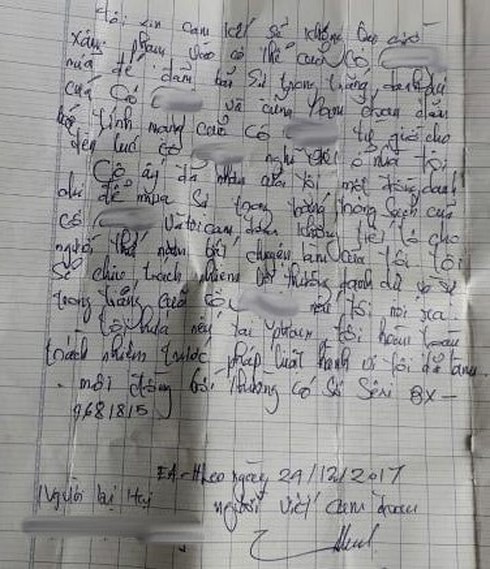 Tôi xin cam kết sẽ không bao giờ
xâm phạm vào cơ thể của cô
nữa để đảm bảo sự trong trắng, danh dự
của cô và cũng
tính mạng của cô từ giờ cho
đến lúc cô nghỉ việc ở nhà tôi
Cô ấy đã nhận của tôi một đồng danh
dự để mua sự trong trắng trong sạch của
cô và tôi cam đoan không tiết lộ cho
người thứ năm biết chuyện làm của tôi. Tôi
sẽ chịu trách nhiệm bồi thường danh dự
trong trắng của cô nếu tôi nói ra.
Tôi hứa nếu tái phạm tôi hoàn toàn
trách nhiệm trước pháp luật hành vi tôi đã làm.
. một đồng bồi thường có số Sêri BX -
9681815
EA-Hleo ngày 29/12/2017
Người bị Hại người viết cam đoan